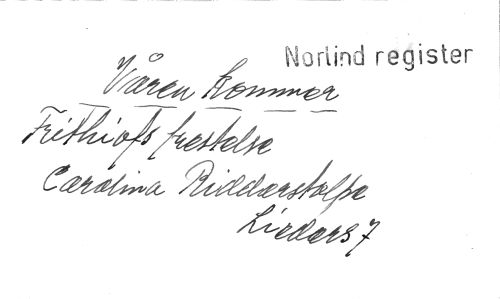 Norlind register
Våren kommer
Frithiofs frestelse
Carolina Ridderstolpe
Lieders 7